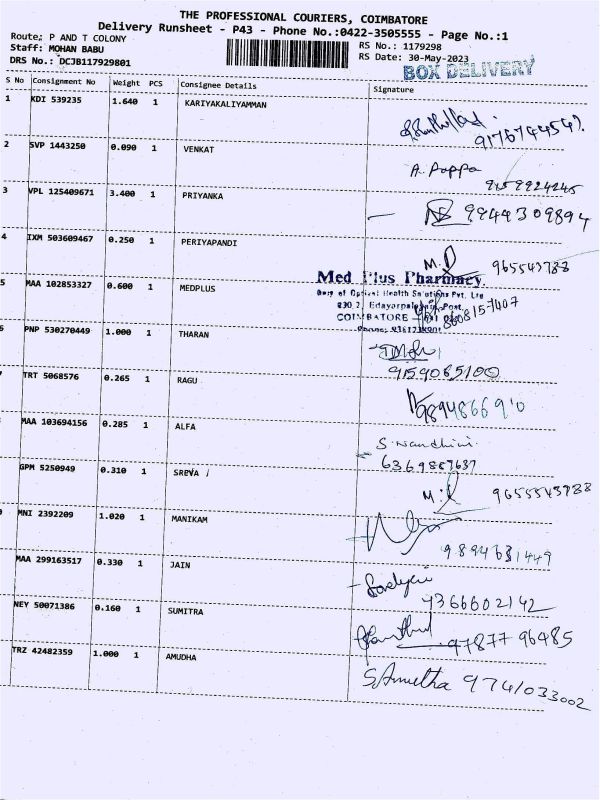 THE PROFESSIONAL COURIERS, COIMBATORE
Delivery Runsheet - P43 - Phone No.:0422-3505555 - Page No.:1
Route: P AND T COLONY
Staff: MOHAN BABU
DRS No.: DCJB117929801
RS No.: 1179298
RS Date: 30-May-2023
BOX DELIVERY
S No Consignment No Weight PCS Consignee Details Signature
1 KDI 539235 1.640 1 KARIYAKALIYAMMAN
2 SVP 1443250 0.090 1 VENKAT
A. Pappa
3 VPL 125409671 3.400 1 PRIYANKA
9944309894
4 IXM 503609467 0.250 1 PERIYAPANDI
M.D
965543788
5 MAA 102853327 0.600 1 MEDPLUS
Med Plus Pharmacy
COIMBATORE
8608157407
6 PNP 530270449 1.000 1 THARAN
9159085100
TRT 5068576 0.265 1 RAGU
MAA 103694156 0.285 1 ALFA
S. Nandhini
6369887637
GPM 5250949 0.310 1 SREVA
9655543788
MNI 2392209 1.020 1 MANIKAM
9894631449
MAA 299163517 0.330 1 JAIN
NEY 50071386 0.160 1 SUMITRA
97877 96485
TRZ 42482359 1.000 1 AMUDHA
S. Amutha 9741033002